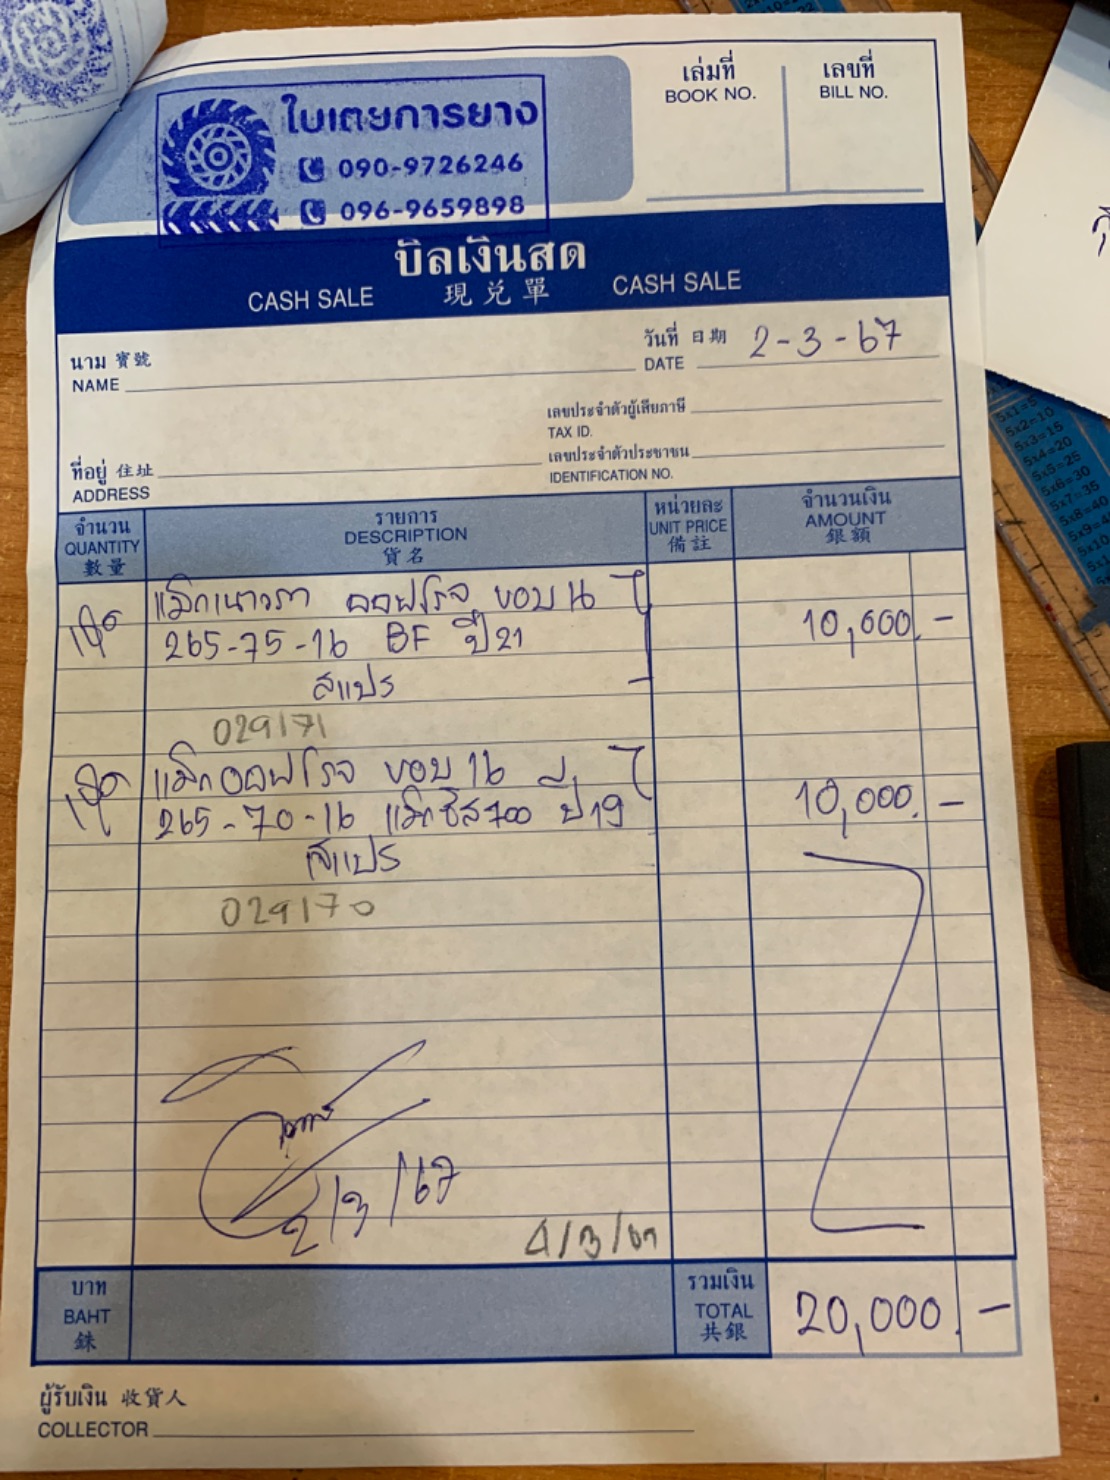 ใบเตยการยาง
090-9726246
096-9659898
เล่มที่
BOOK NO.
เลขที่
BILL NO.
บิลเงินสด
CASH SALE 現兑單 CASH SALE
นาม 寶號
NAME
วันที่ 日期
DATE 2-3-67
เลขประจำตัวผู้เสียภาษี
TAX ID.
ที่อยู่ 住址
ADDRESS
เลขประจำตัวประชาชน
IDENTIFICATION NO.
จำนวน
QUANTITY
數量
รายการ
DESCRIPTION
貨名
หน่วยละ
UNIT PRICE
備註
จำนวนเงิน
AMOUNT
銀額
แม็กเนาวรา ออฟโรจ ขอบ 16
265-75-16 BF ปี 21 10,000.-
สแปร
029171
แม็กออฟโรจ ขอบ 16
265-70-16 แม็กซีส 700 ปี 19 10,000.-
สแปร
029170
2/3/67
4/3/67
บาท
BAHT
銖
รวมเงิน
TOTAL
共銀
20,000.-
ผู้รับเงิน 收貨人
COLLECTOR
5x1=5
5x2=10
5x3=15
5x4=20
5x5=25
5x6=30
5x7=35